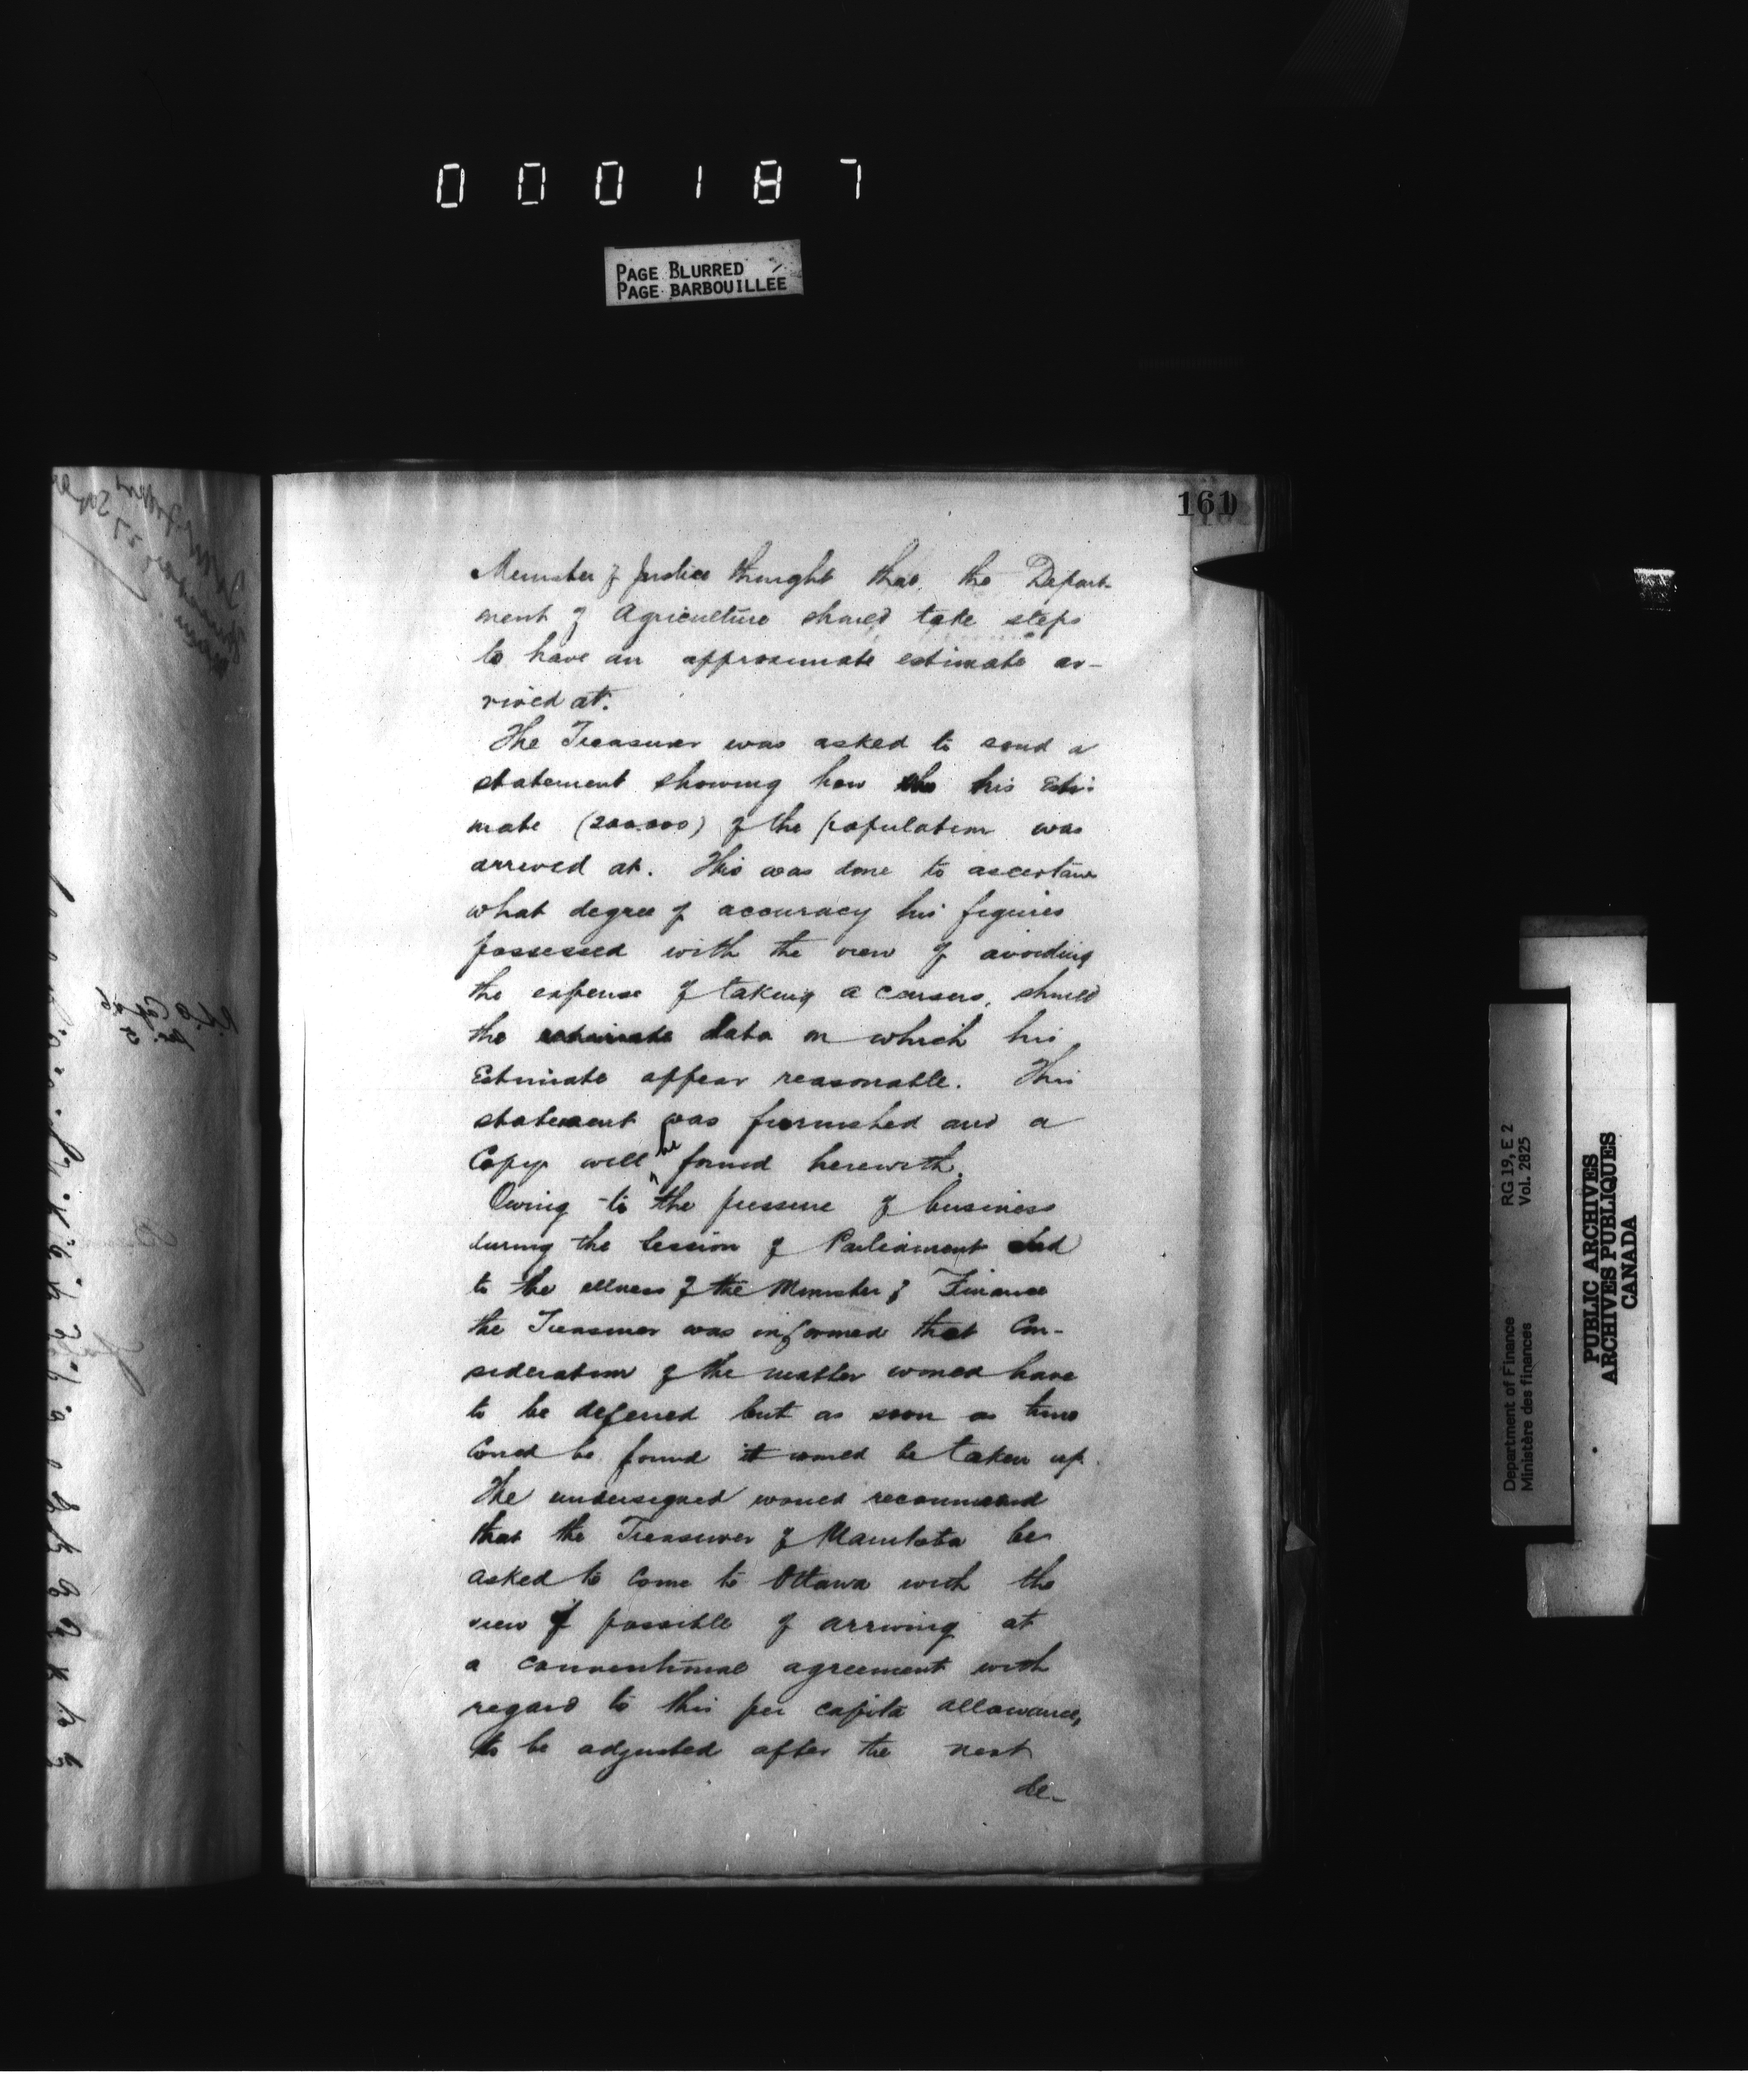 000187
PAGE BLURRED
PAGE BARBOUILLÉE
161
Minister of Justice thought that the Depart-
ment of Agriculture should take steps
to have an approximate estimate ar-
rived at.
The Treasurer was asked to send a
statement showing how his Esti-
mate (200.000) of the population was
arrived at. This was done to ascertain
what degree of accuracy his figures
possessed with the view of avoiding
the expense of taking a census, should
the data on which his
Estimate appear reasonable. This
statement was furnished and a
Copy will be found herewith.
Owing to the pressure of business
during the Session of Parliament and
to the illness of the Minister of Finance
the Treasurer was informed that Con-
sideration of the matter would have
to be deferred but as soon as time
Could be found it would be taken up.
The undersigned would recommend
that the Treasurer of Manitoba be
asked to Come to Ottawa with the
view if possible of arriving at
a conventional agreement with
regard to this per capita allowance,
to be adjusted after the next
de-
RG 19, E 2
Vol. 2825
Department of Finance
Ministère des finances
PUBLIC ARCHIVES
ARCHIVES PUBLIQUES
CANADA